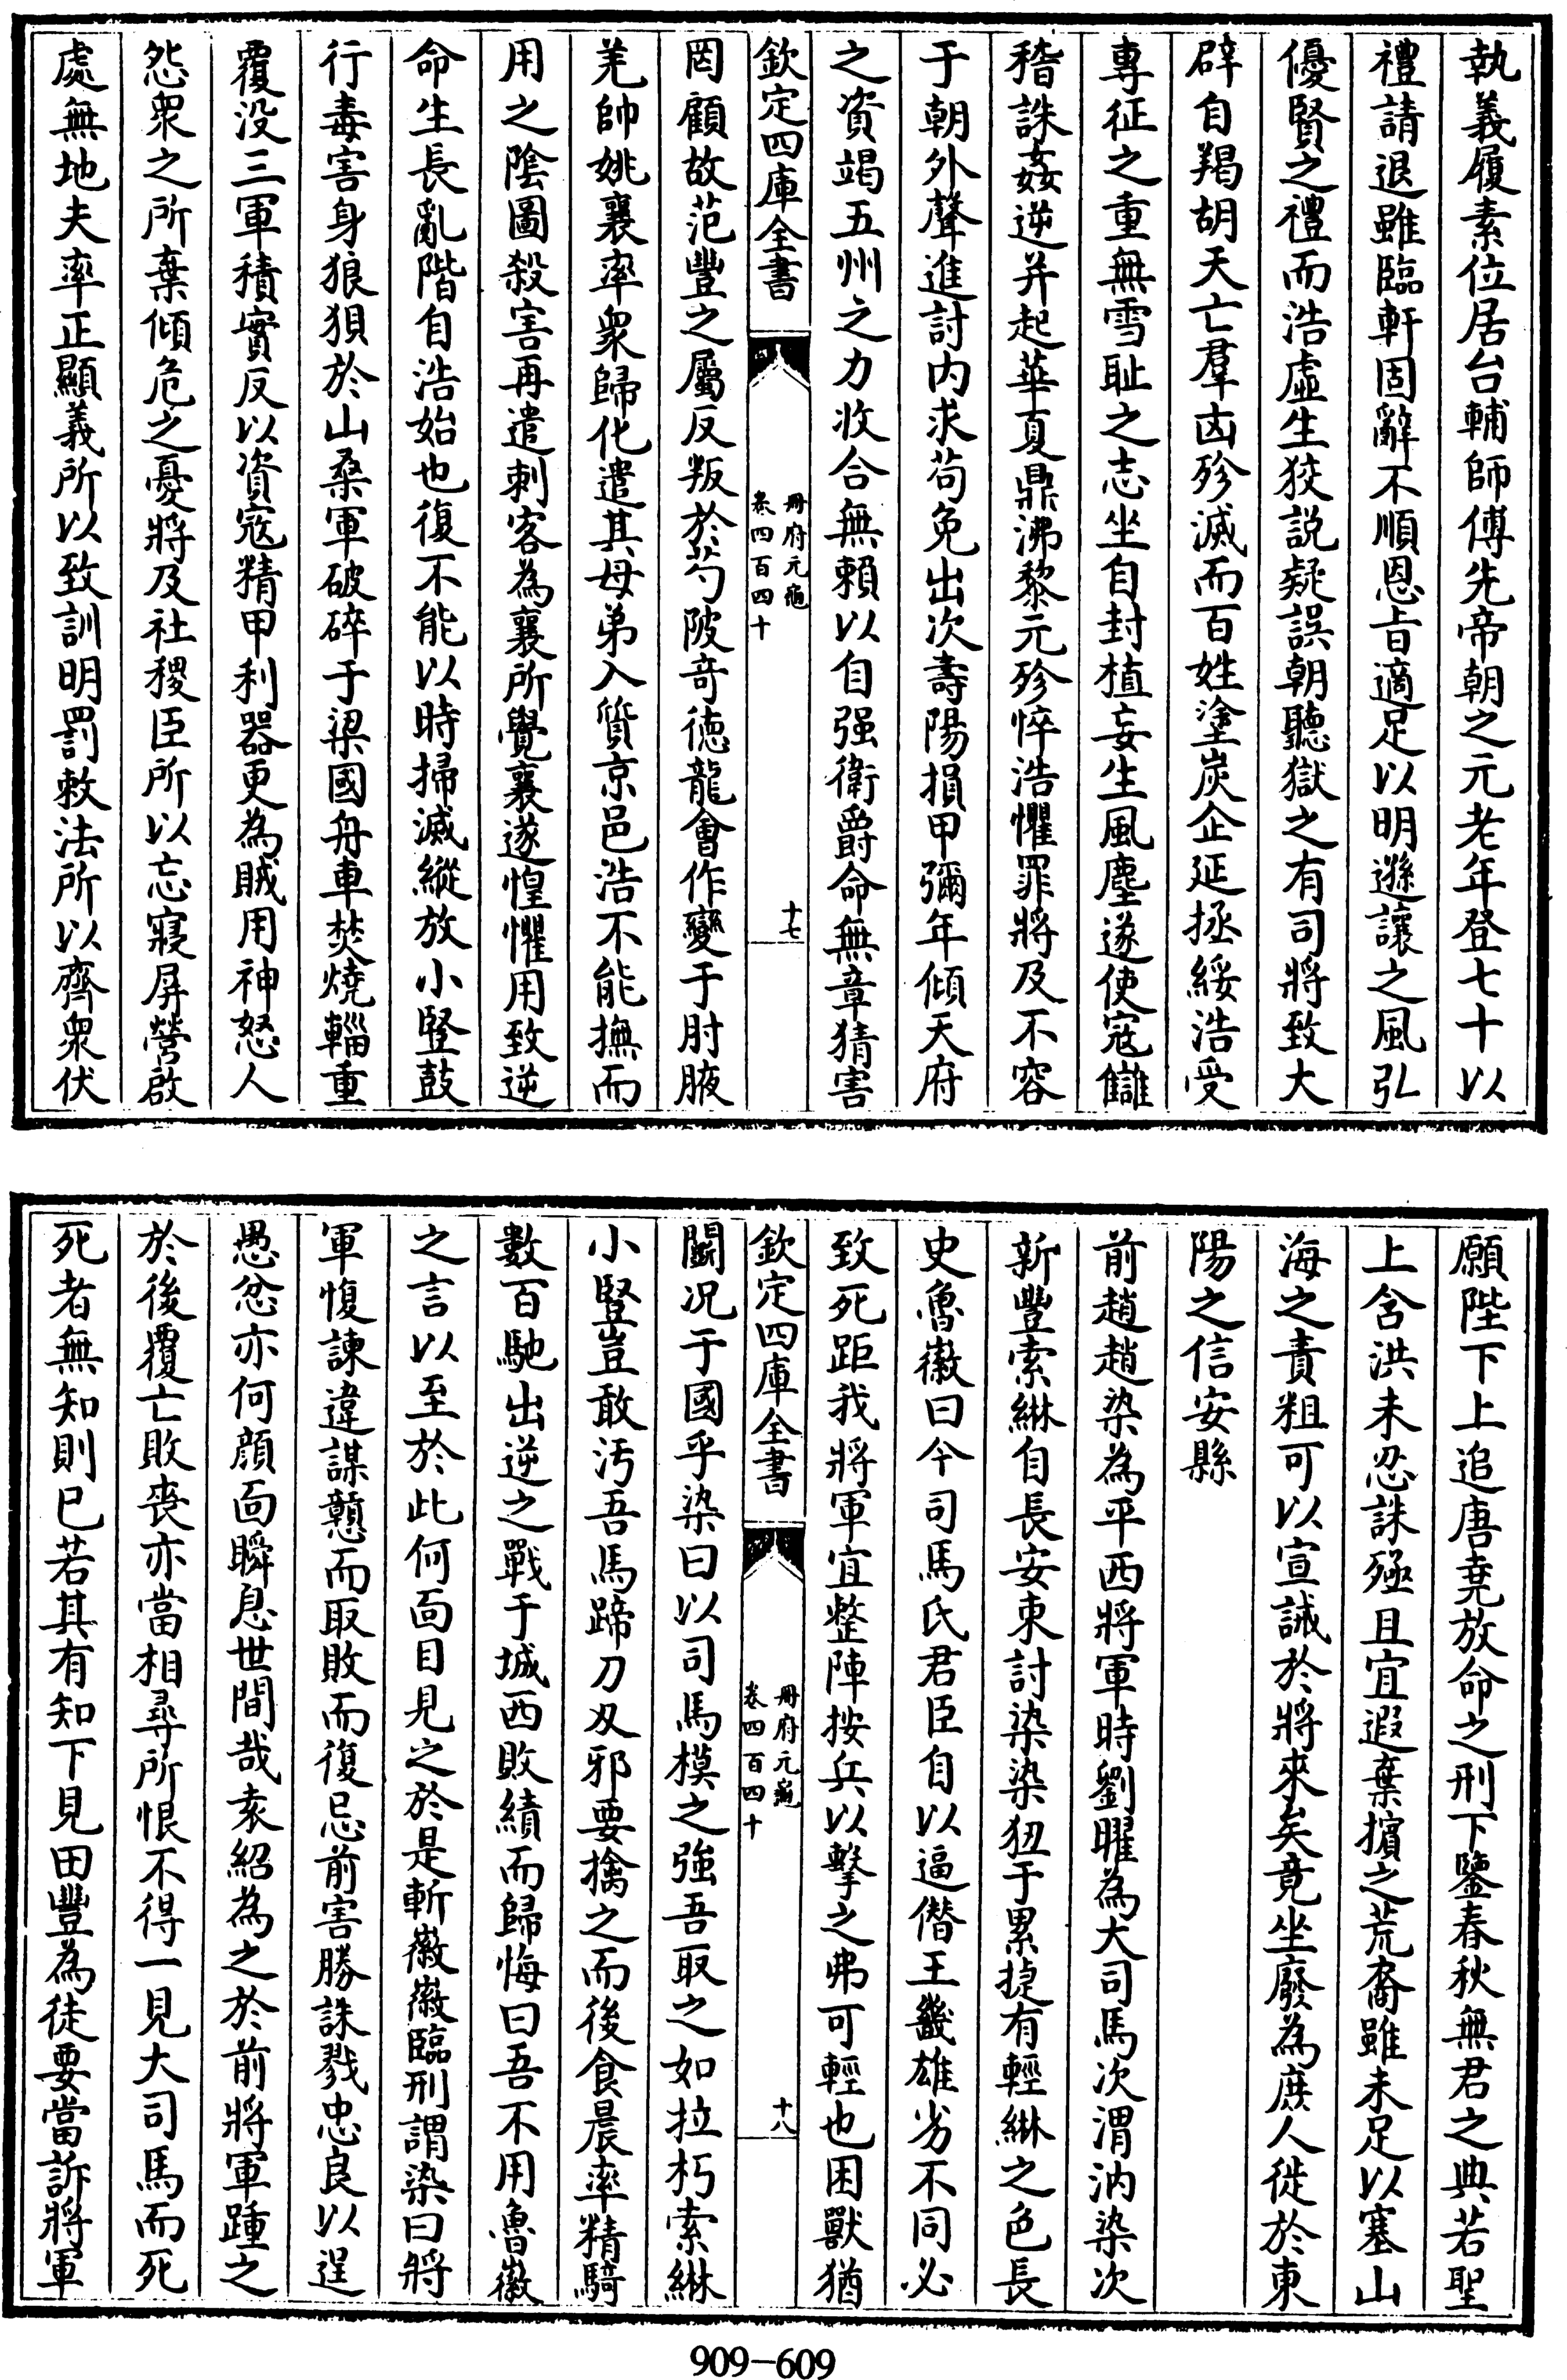 執義履素位居台輔師傅先帝朝之元老年登七十以
禮請退雖臨軒固辭不順恩旨適足以明遜讓之風弘
優賢之禮而浩虛生狡説疑誤朝聽獄之有司將致大
辟自羯胡天亡羣凶殄滅而百姓塗炭企延拯綏浩受
專征之重無雪耻之志坐自封植妄生風塵遂使寇讎
稽誅姦逆并起華夏鼎沸黎元殄悴浩懼罪將及不容
于朝外聲進討内求苟免出次壽陽損甲彌年傾天府
之資竭五州之力收合無賴以自强衛爵命無章猜害
欽定四庫全書
冊府元龜
卷四百四十
十七
罔顧故范豐之屬反叛於芍陂竒徳龍會作變于肘腋
羌帥姚襄率衆歸化遣其母弟入質京邑浩不能撫而
用之隂圖殺害再遣刺客為襄所覺襄遂惶懼用致逆
命生長亂階自浩始也復不能以時掃滅縱放小竪鼓
行毒害身狼狽於山桑軍破碎于梁國舟車焚燒輜重
覆没三軍積實反以資寇精甲利器更為賊用神怒人
怨衆之所棄傾危之憂將及社稷臣所以忘寢屏營啟
處無地夫率正顯義所以致訓明罰敕法所以齊衆伏
願陛下上追唐堯放命之刑下鑒春秋無君之典若聖
上含洪未忍誅殛且宜遐棄擯之荒裔雖未足以塞山
海之責粗可以宣誡於將來矣竟坐廢為庶人徙於東
陽之信安縣
前趙趙染為平西將軍時劉曜為大司馬次渭汭染次
新豐索綝自長安東討染染狃于累捷有輕綝之色長
史魯徽曰今司馬氏君臣自以逼僭王畿雄劣不同必
致死距我將軍宜整陣按兵以擊之弗可輕也困獸猶
欽定四庫全書
冊府元龜
卷四百四十
十八
鬭况于國乎染曰以司馬模之強吾取之如拉朽索綝
小豎豈敢汚吾馬蹄刀刄邪要擒之而後食晨率精騎
數百馳出逆之戰于城西敗績而歸悔曰吾不用魯徽
之言以至於此何面目見之於是斬徽徽臨刑謂染曰將
軍愎諫違謀戇而取敗而復忌前害勝誅戮忠良以逞
愚忿亦何顔面瞬息世間哉袁紹為之於前將軍踵之
於後覆亡敗喪亦當相尋所恨不得一見大司馬而死
死者無知則已若其有知下見田豐為徒要當訴將軍
909-609